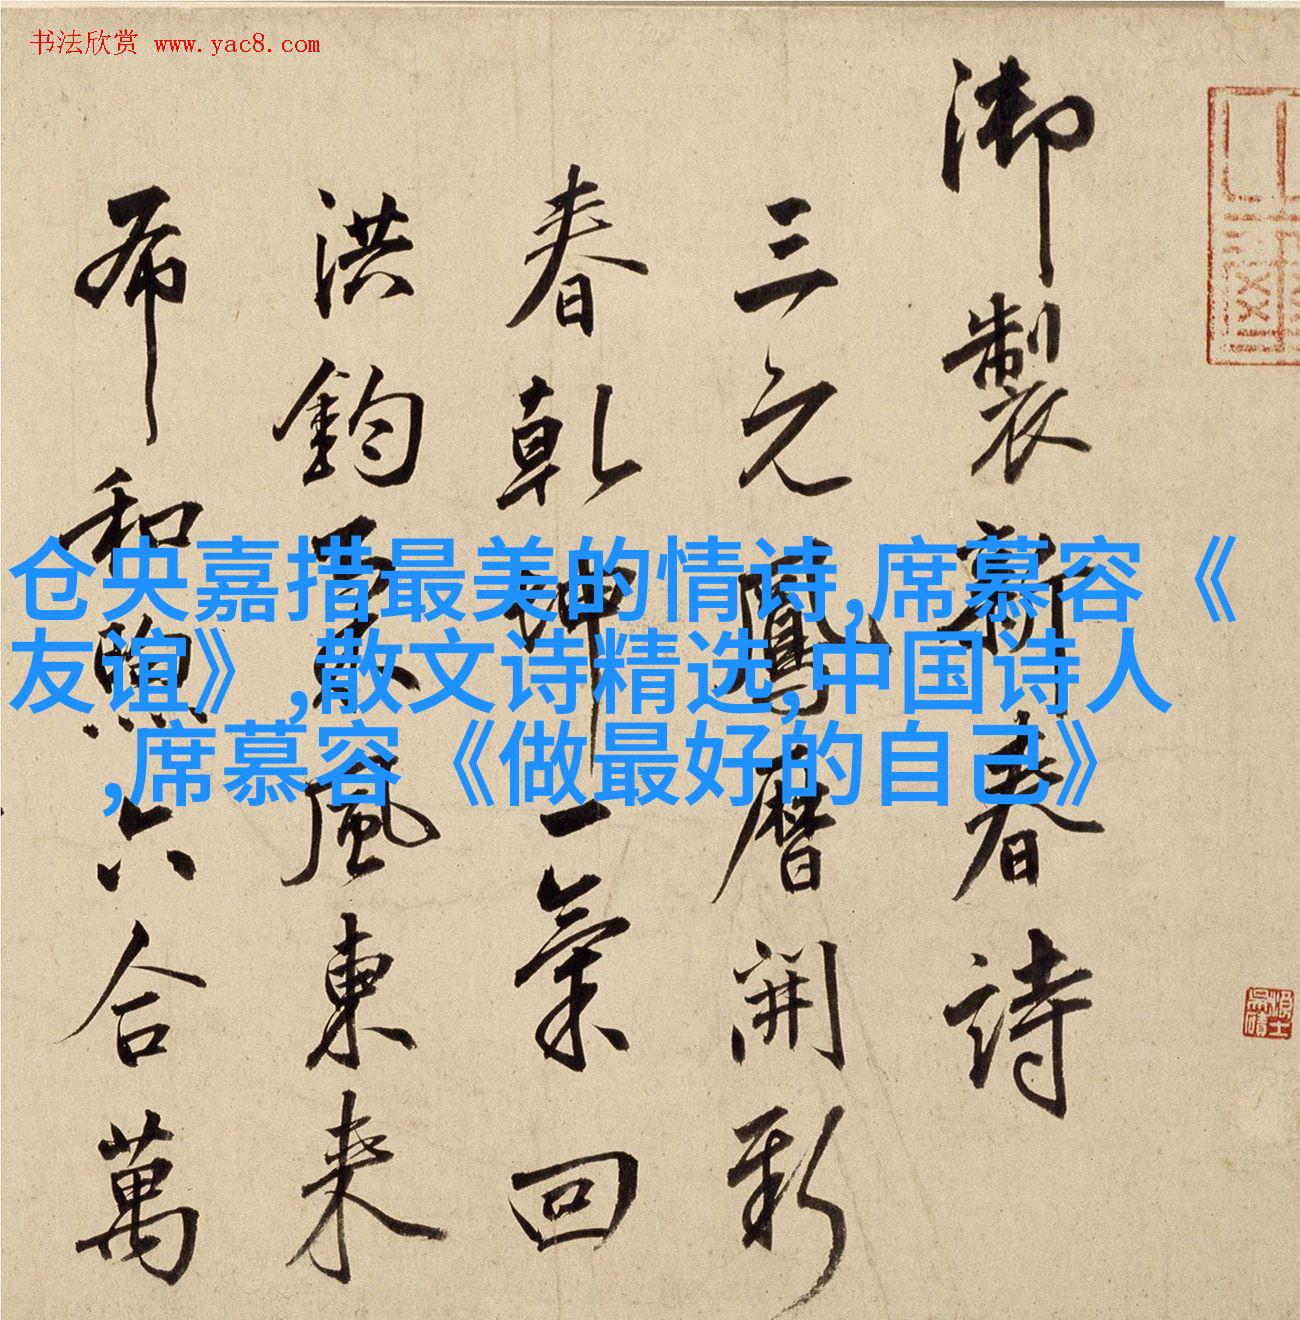 书法欣赏 www.yac8.com
御製新春詩
三元鳳曆開新
春乾坤一氣回
洪鈞風東来
布和煦六合萬
仓央嘉措最美的情诗,席慕容《
友谊》,散文诗精选,中国诗人
,席慕容《做最好的自己》